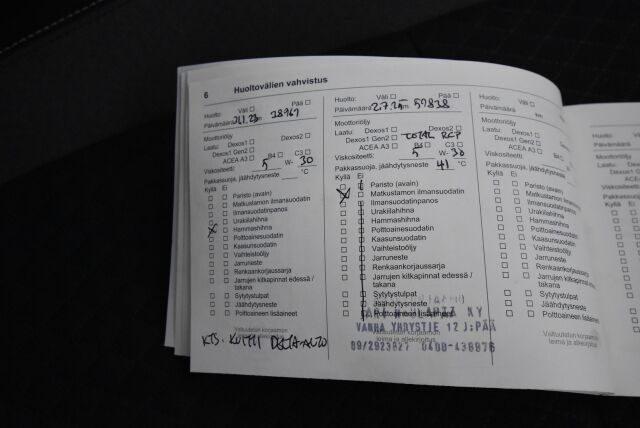 6 Huoltovälien vahvistus
Huolto: Väli Pää
Päivämäärä km 28969
Moottoriöljy
Laatu: Dexos1 Dexos2
Dexos1 Gen2
ACEA A3 B4 C3
Viskositeetti: 5 W- 30
Pakkassuoja, jäähdytysneste °C
Kyllä Ei
Paristo (avain)
Matkustamon ilmansuodatin
Ilmansuodatinpanos
Urakiilahihna
Hammashihna
Polttoainesuodatin
Kaasunsuodatin
Vaihteistoöljy
Jarruneste
Renkaankorjaussarja
Jarrujen kitkapinnat edessä /
takana
Sytytystulpat
Jäähdytysneste
Polttoaineen lisäaineet
Valtuutetun korjaamon
KTS. KUITTI DELTA-AUTO
Huolto: Väli Pää
Päivämäärä 2.7.25 km 57838
Moottoriöljy
Laatu: Dexos1 Dexos2
Dexos1 Gen2 TOTAL RCP
ACEA A3 B4 C3
Viskositeetti: 5 W- 30
Pakkassuoja, jäähdytysneste 41 °C
Kyllä Ei
Paristo (avain)
Matkustamon ilmansuodatin
Ilmansuodatinpanos
Urakiilahihna
Hammashihna
Polttoainesuodatin
Kaasunsuodatin
Vaihteistoöljy
Jarruneste
Renkaankorjaussarja
Jarrujen kitkapinnat edessä /
takana
Sytytystulpat
Jäähdytysneste
Polttoaineen lisäaineet
KY
VANHA YHDYSTIE 12 J:PÄÄ
Valtuutetun korjaamon
leima ja allekirjoitus
09/2923827 0400-438876
Huolto: Väli
Päivämäärä km
Moottoriöljy
Laatu: Dexos1
Dexos1 Gen2
ACEA A3 B4
Viskositeetti:
Pakkassuoja, jäähdytysneste
Kyllä Ei
Paristo (avain)
Matkustamon ilmansuodatin
Ilmansuodatinpanos
Urakiilahihna
Hammashihna
Polttoainesuodatin
Kaasunsuodatin
Vaihteistoöljy
Jarruneste
Renkaankorjaussarja
Jarrujen kitkapinnat edessä /
takana
Sytytystulpat
Jäähdytysneste
Polttoaineen lisäaineet
Valtuutetun korjaamon
leima ja allekirjoitus